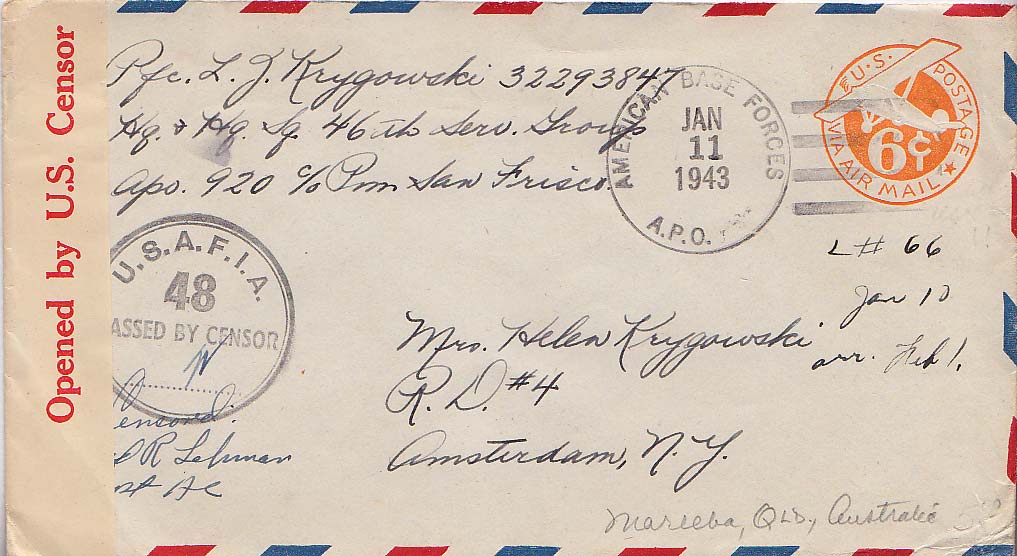 Opened by U.S. Censor
Pfc. L. J. Krygowski 32293847
Hq. & Hq. Sq. 46th Serv. Group
Apo. 920 c/o Pm San Frisco.
AMERICAN BASE FORCES
JAN
11
1943
A.P.O.
U.S. POSTAGE
6¢
VIA AIR MAIL
L# 66
Jan 10
arr. Feb 1.
U.S.A.F.I.A.
48
ASSED BY CENSOR
ensored.
R Lehman
AC
Mrs. Helen Krygowski
R. D. #4
Amsterdam, N. Y.
Mareeba, QLD., Australia